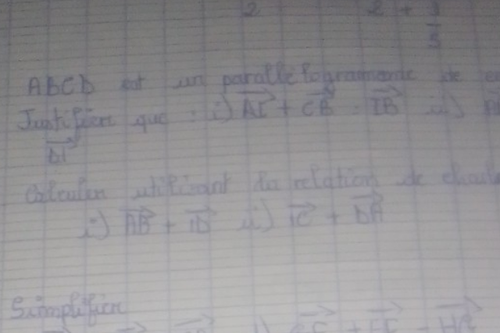 2 2 + 1
3
ABCD est un parallélogramme de
Justifier que : i) AI + CB = IB ii)
DI
Calculer utilisant la relation de chasle
i) AB + ID ii) IC + DA
Simplifier